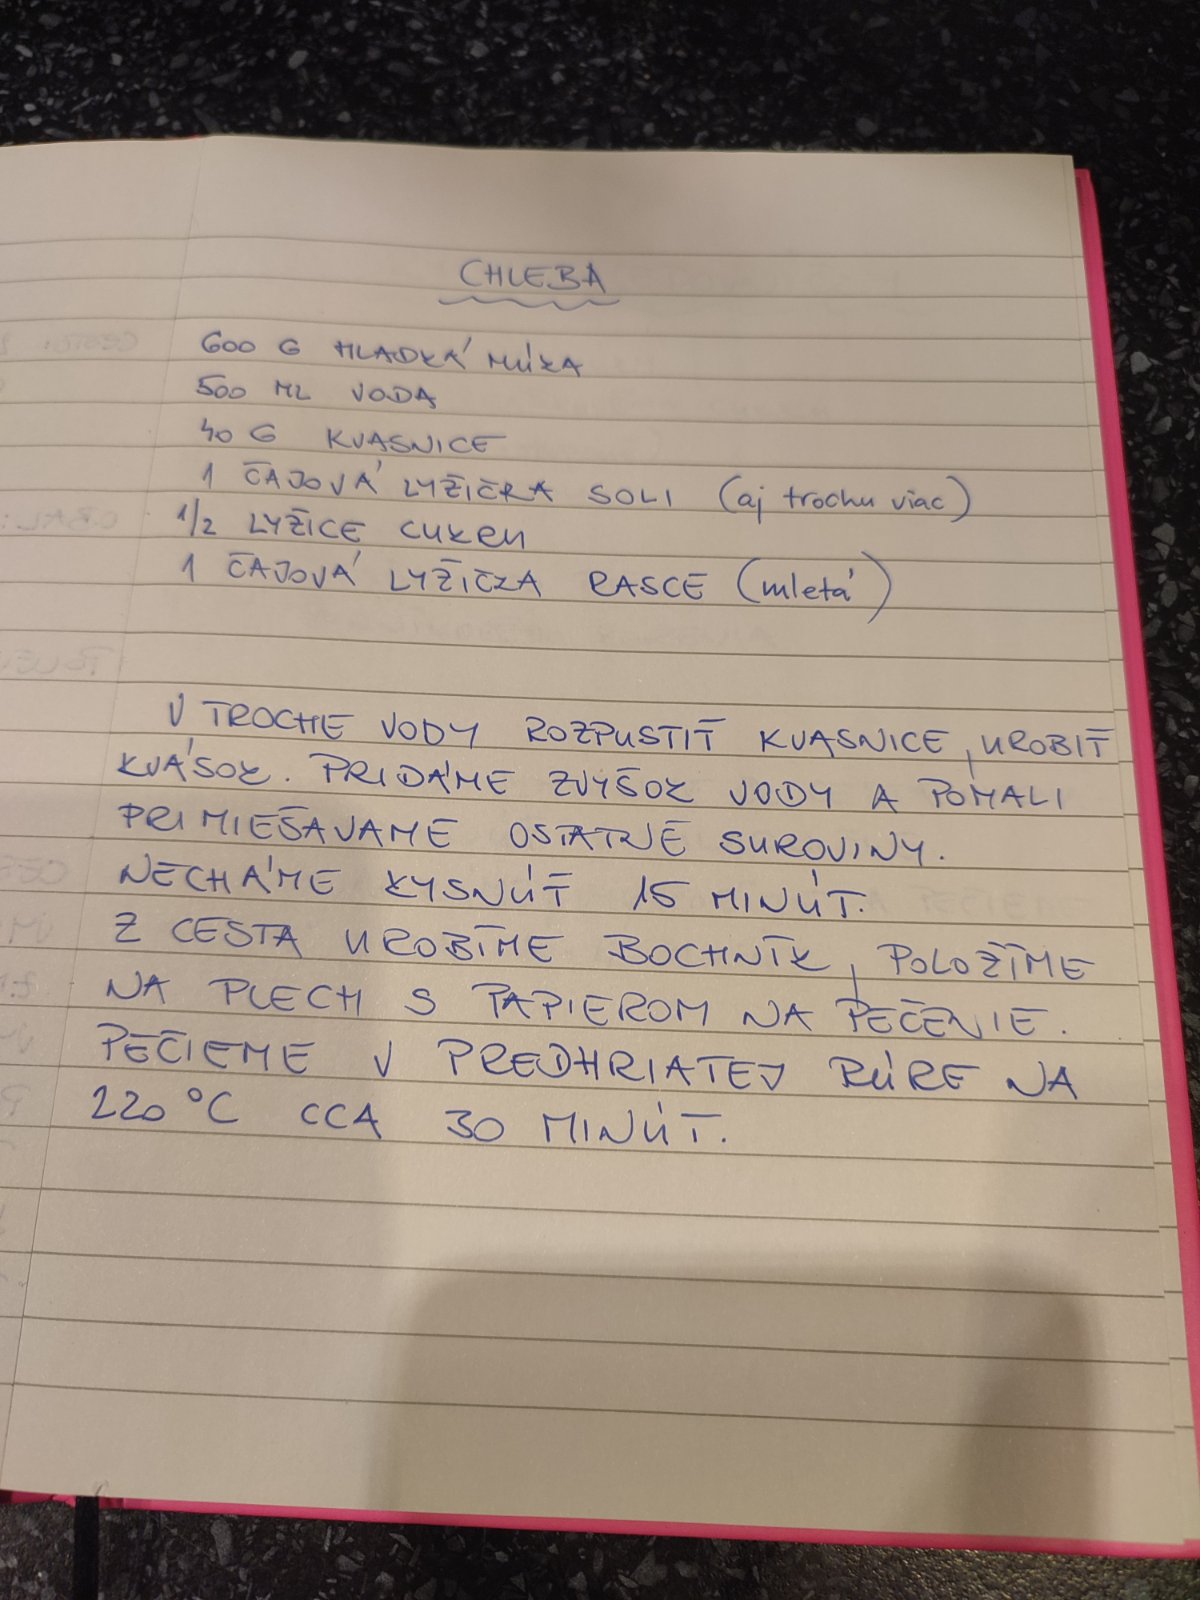 CHLEBA
600 G HLADKÁ MÚKA
500 ML VODA
40 G KVASNICE
1 ČAJOVÁ LYŽIČKA SOLI (aj trochu viac)
1/2 LYŽICE CUKRU
1 ČAJOVÁ LYŽIČKA RASCE (mletá)
V TROCHE VODY ROZPUSTIŤ KVASNICE, UROBIŤ
KVÁSOK. PRIDÁME ZVYŠOK VODY A POMALI
PRIMIEŠAVAME OSTATNÉ SUROVINY.
NECHÁME KYSNÚŤ 15 MINÚT.
Z CESTA UROBÍME BOCHNÍK, POLOŽÍME
NA PLECH S PAPIEROM NA PEČENIE.
PEČIEME V PREDHRIATEJ RÚRE NA
220 °C CCA 30 MINÚT.